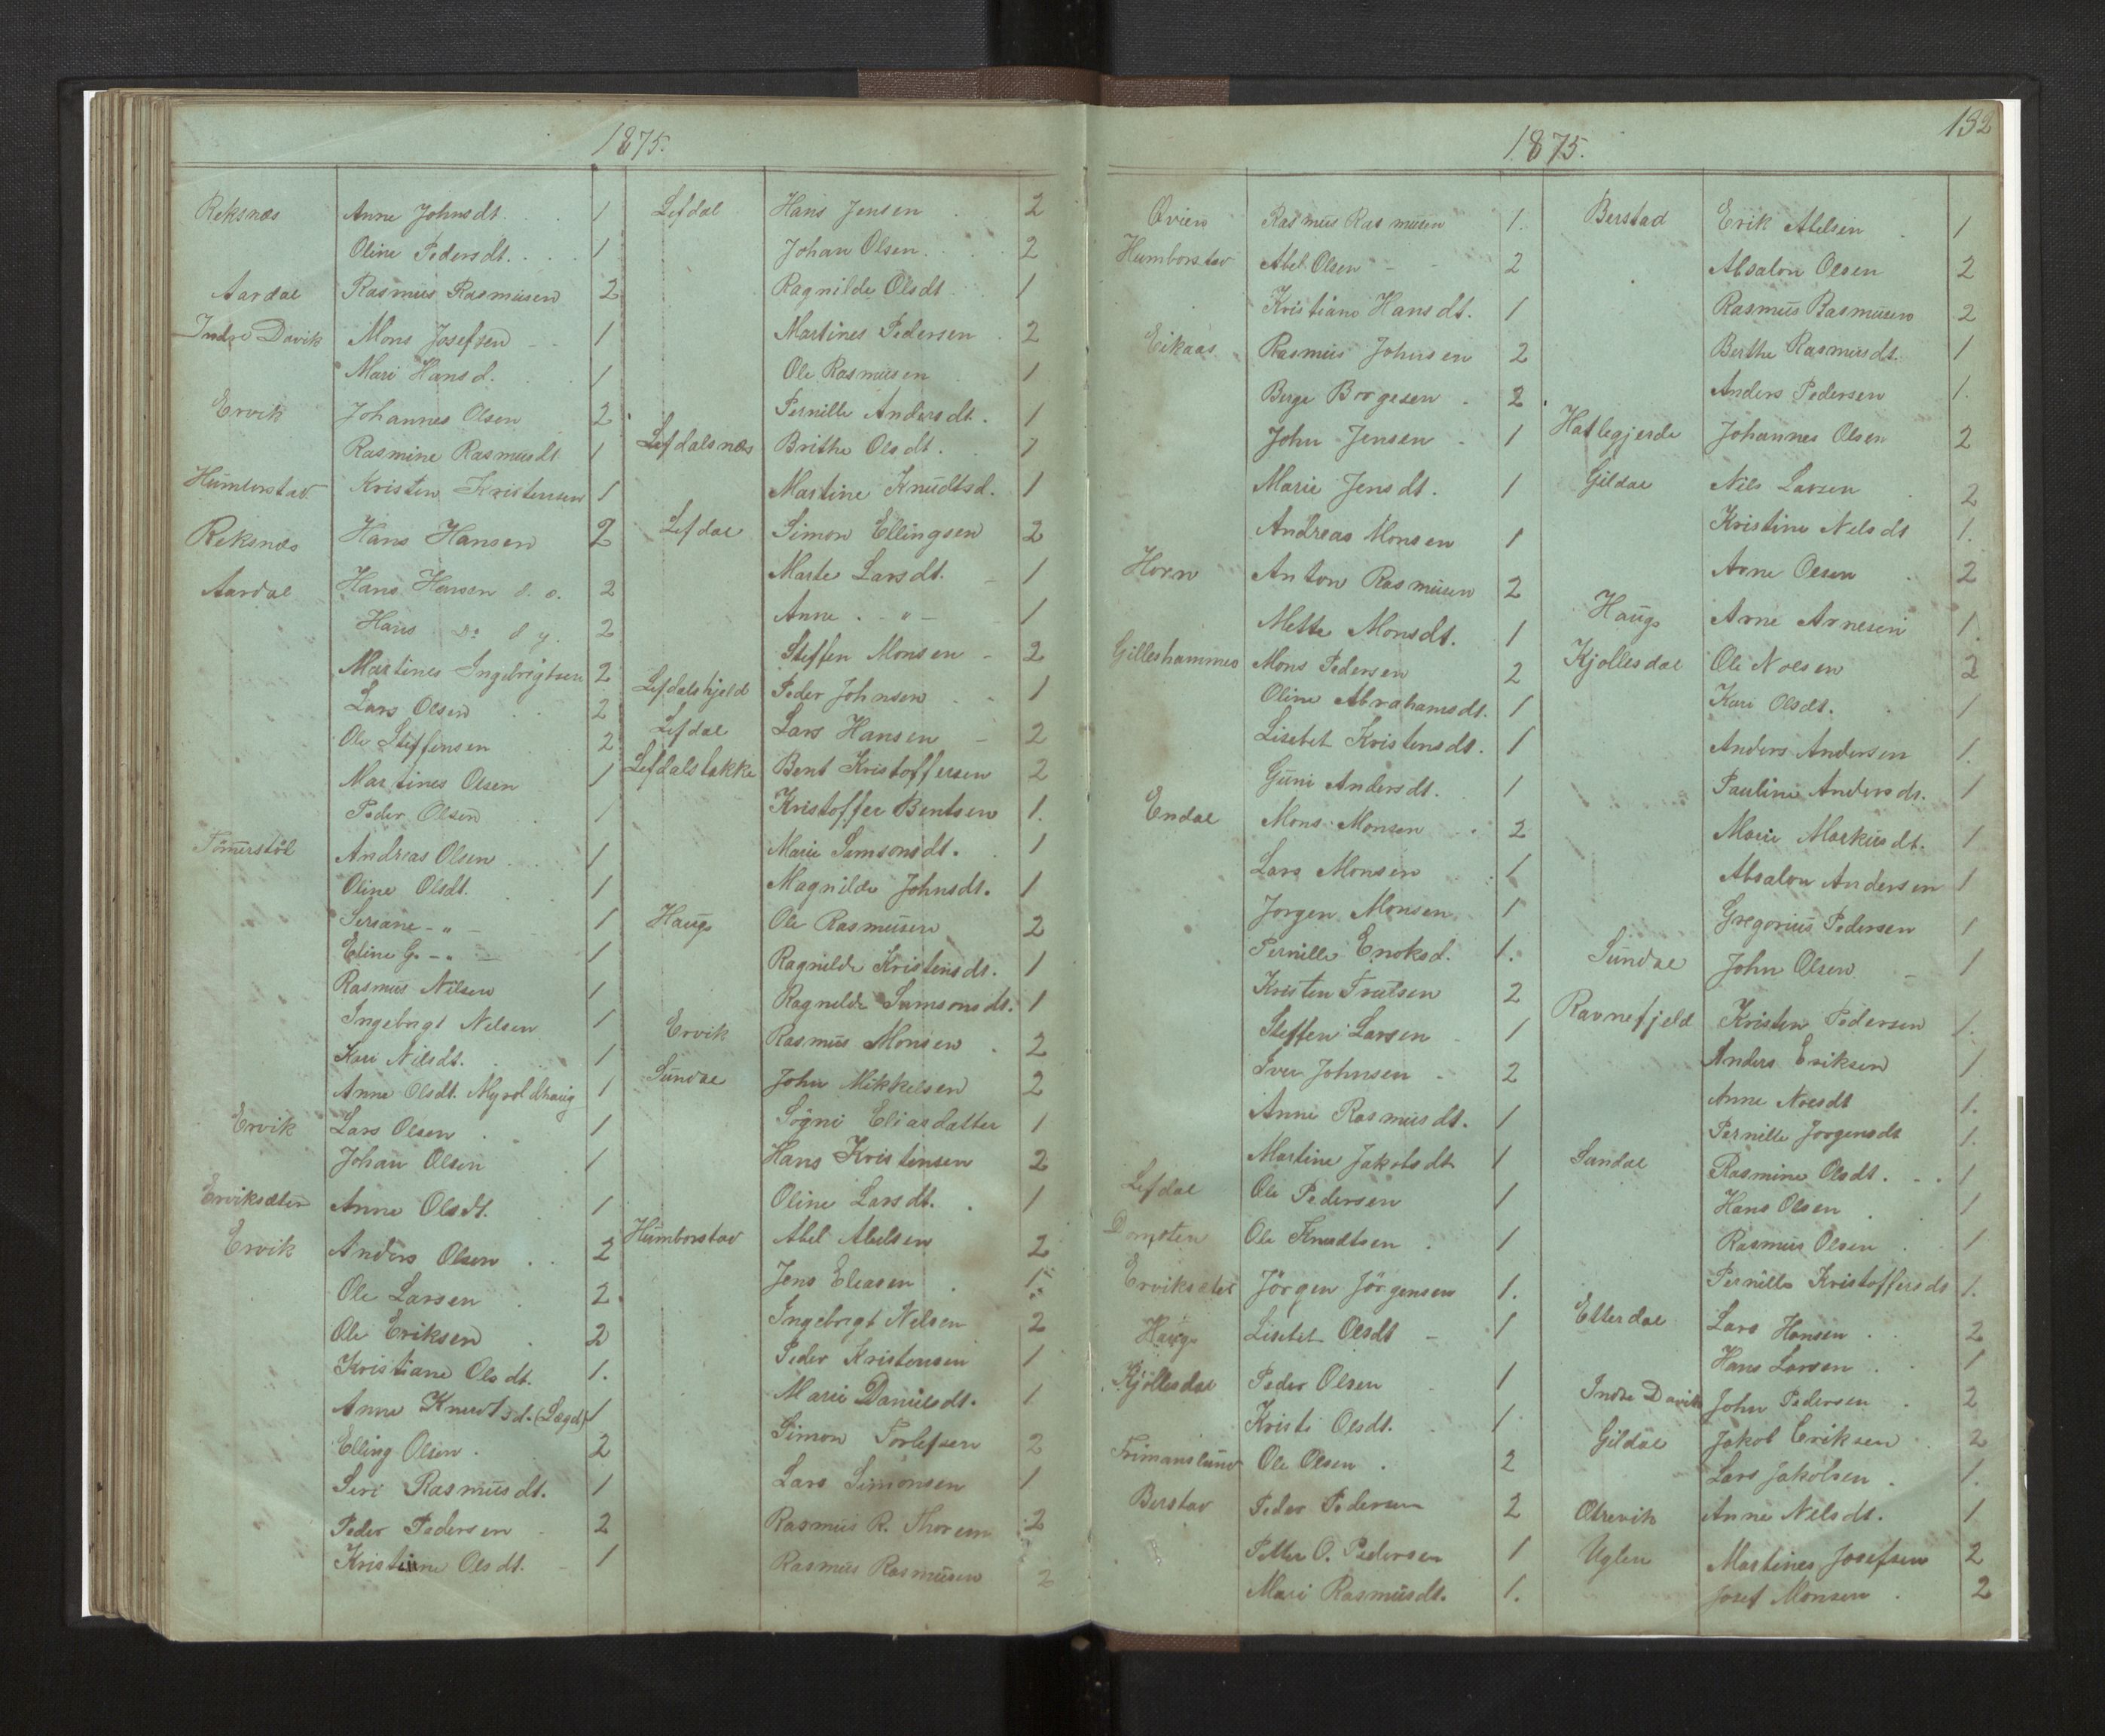 1875.
Reksnæs Anne Johnsdt. 1
Oline Pedersdt. 1
Aardal Rasmus Rasmusen 2
Indre Davik Mons Josefsen 1
Mari Hansd. 1
Ervik Johannes Olsen 2
Rasmine Rasmusdt 1
Humborstad Kristen Kristensen 1
Reksnæs Hans Hansen 2
Aardal Hans Hansen d. o. 2
Hans Do d y. 2
Martines Ingebrigtsen 2
Lars Olsen 2
Ole Steffensen 2
Martines Olsen 1
Peder Olsen 1
Andreas Olsen 1
Oline Olsdt. 1
Seriane - " - 1
Eline G. - " - 1
Rasmus Nilsen 1
Ingebrigt Nilsen 1
Kari Nilsdt. 1
Anne Olsdt. Myroldhaug 1
Ervik Lars Olsen 1
Johan Olsen 1
Erviksæter Anne Olsdt. 1
Ervik Anders Olsen 2
Ole Larsen 2
Ole Eriksen 2
Kristiane Olsdt. 1.
Anne Knudtsd. (Lægd) 1
Elling Olsen 2
Siri Rasmusdt. 1
Peder Pedersen 2
Kristine Olsdt. 1
Lefdal Hans Jensen 2
Johan Olsen 2
Ragnilde Olsdt 1
Martines Pedersen 2
Ole Rasmusen 1
Pernille Andersdt. 1
Lefdalsnæs Brithe Olsdt. 1
Martine Knudtsd. 1
Lefdal Simon Ellingsen 2
Marte Larsdt. 1
Anne - " - 1
Steffen Monsen 2
Lefdalshjeld Peder Johnsen 1
Lefdal Lars Hansen 2
Lefdalsbakke Bent Kristoffersen 2
Kristoffer Bentsen 1.
Marie Samsonsdt. 1
Magnilde Johnsdt. 1
Haugs Ole Rasmusen 2
Ragnilde Kristensdt. 1
Ragnilde Samsonsdt. 1
Ervik Rasmus Monsen 2
Sundal John Mikkelsen 2
Søgni Eliasdatter 1
Hans Kristensen 2
Oline Larsdt. 1
Humborstad Abel Abelsen 2
Jens Eleasen 1
Ingebrigt Nilsen 2
Peder Kristensen 1
Marie Danielsdt. 1
Simon Torlefsen 2
Lars Simonsen 1
Rasmus R. 2
Rasmus Rasmusen 2
132
1875.
Rasmus Rasmusen 1.
Humborstad Abel Olsen 2
Kristiane Hansdt. 1
Eikaas Rasmus Johnsen 2
Berge Borgesen 2
John Jensen 1
Marie Jensdt. 1
Andreas Monsen 1
Horn Anton Rasmusen 2
Mette Monsdt. 1
Gilleshammer Mons Pedersen 2
Oline Abrahamsdt. 1
Lisebet Kristensdt. 1
Guni Andersdt. 1
Endal Mons Monsen 2
Lars Monsen 1
Jorgen Monsen 1
Pernille Enoksd. 1.
Kristen 2
Steffen Larsen 1
Iver Johnsen 2
Anne Rasmusdt. 1
Martine Jakobsdt 1
Lefdal Ole Pedersen 1
Ole Knudtsen 1
Erviksetel Jörgen Jörgensen 1.
Haugs Lisebet Olsdt 1
Kjöllesdal Peder Olsen 1
Kristi Olsdt. 1
Frimanslund Ole Olsen 2
Berstad Peder Pedersen 2
Petter O. Pedersen 1
Mari Rasmusdt. 1.
Berstad Erik Abelsen 1
Absalon Olsen 2
Rasmus Rasmusen 2
Berthe Rasmusdt. 1
Anders Pedersen 1.
Hatlegjerde Johannes Olsen 2
Gildal Nils Larsen 2
Kristine Nilsdt 1.
Arne Olsen 2
Haugs Arne Arnesen 1.
Kjollesdal Ole Noesen 2
Kari Olsdt. 1
Anders Andersen 1.
Pauline Andersdt. 1
Marie Markusdt. 1
Absalon Andersen 1
Gregorius Pedersen 1
Sundal John Olsen 1
Ravnefjeld Kristen Pedersen 1.
Anders Eriksen 1
Anne Noesdt 1.
Pernille Jorgensdt 1.
Sundal Rasmine Olsdt. 1
Hans Olsen 1
Rasmus Olsen 1
Pernille Kristoffersdt 1.
Etterdal Lars Hansen 2
Hans Larsen 1
Indre Davik John Pedersen 2
Gildal Jakob Eriksen 2
Lars Jakobsen 1.
Otrevik Anne Nilsdt. 1
Uglen Martines Josefsen 2
Josef Monsen 2